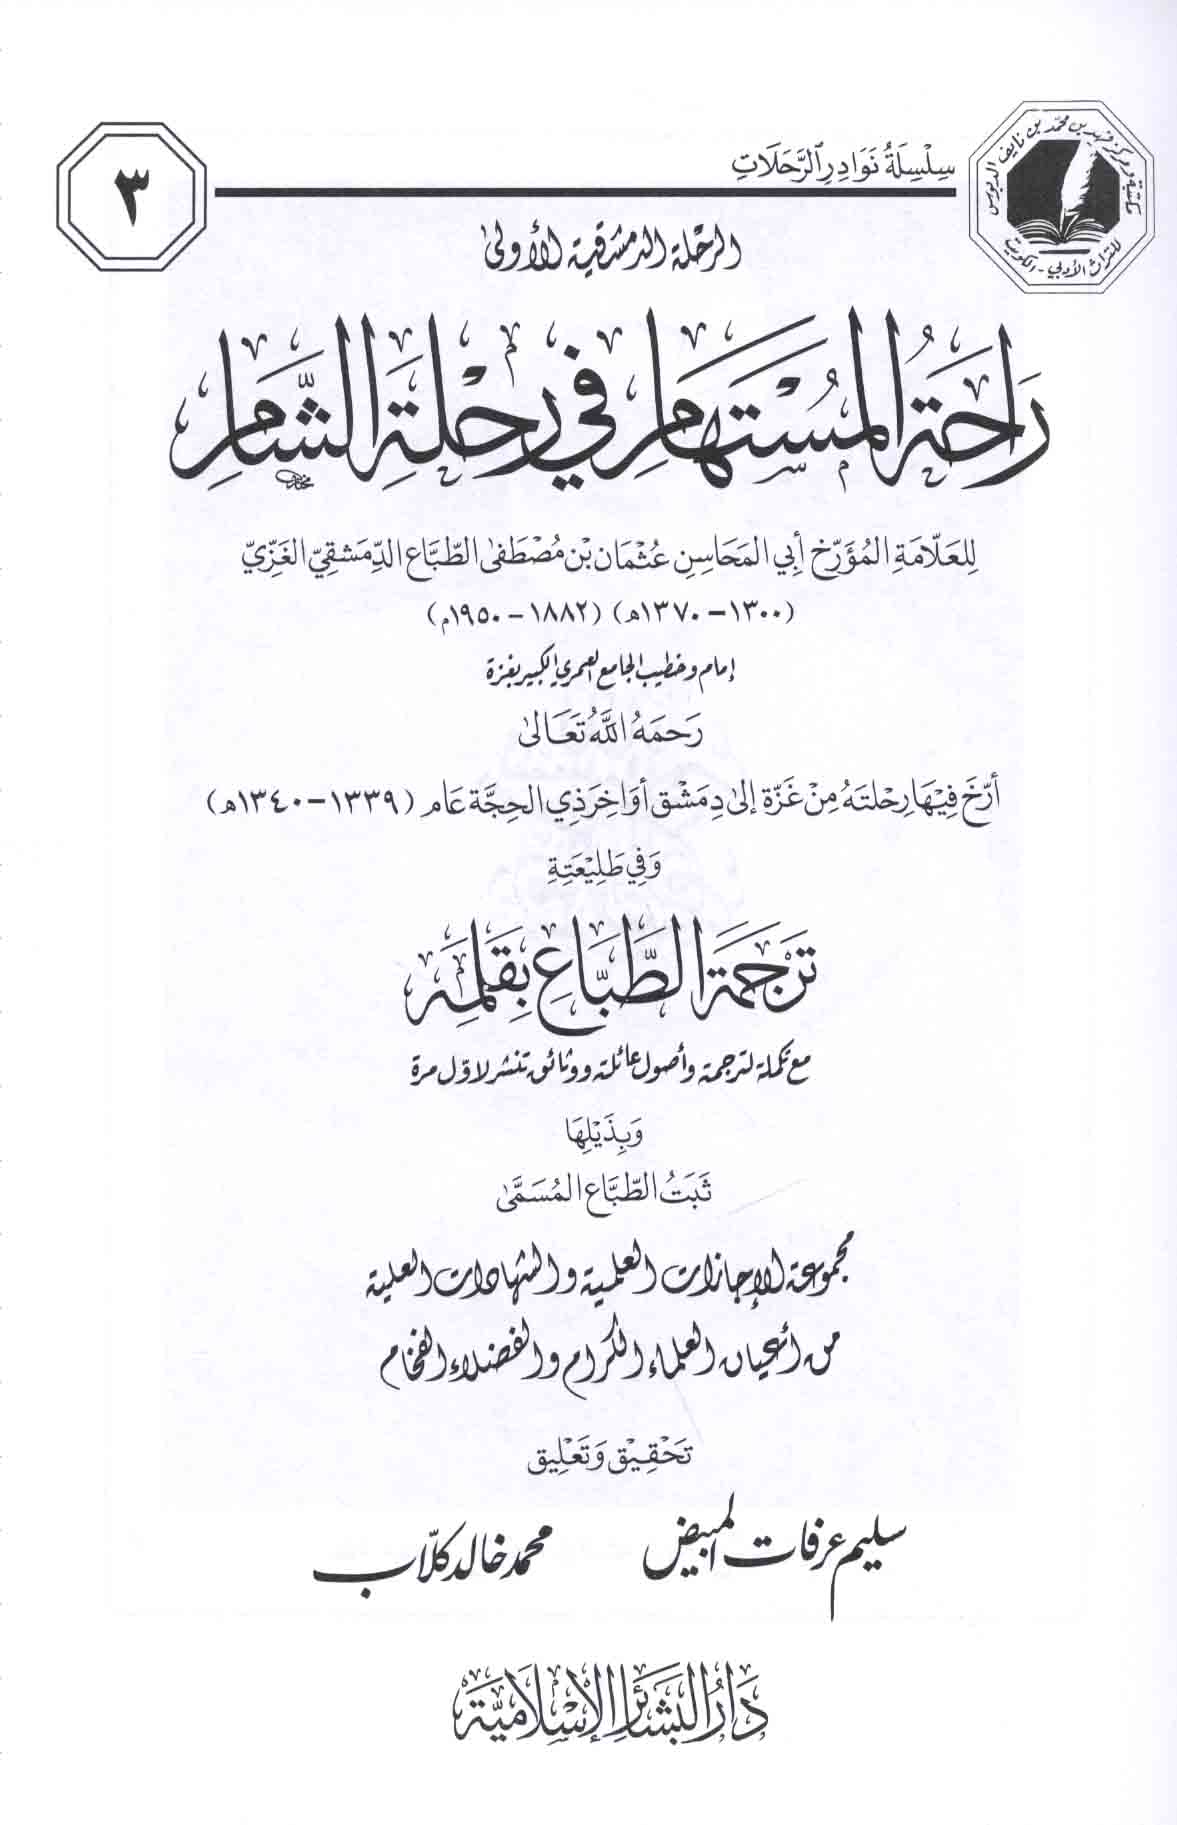 مكتبة ومركز فهد بن محمد بن نايف الدبوس
للتراث الأدبي - الكويت
سِلْسِلَةُ نَوَادِرِ الرَّحَلَاتِ
٣
الرحلة الدمشقية الأولى
رَاحَةُ المُسْتَهَامِ فِي رِحْلَةِ الشَّامِ
لِلعَلَّامَةِ المُؤَرِّخِ أَبِي المَحَاسِنِ عُثْمَان بْن مُصْطَفَى الطَّبَّاع الدِّمَشقِيّ الغَزِّيّ
(١٣٠٠ – ١٣٧٠هـ) (١٨٨٢ – ١٩٥٠م)
إمام وخطيب الجامع العمري الكبير بغزة
رَحِمَهُ اللَّهُ تَعَالَى
أَرَّخَ فِيْهَا رِحْلتَهُ مِنْ غَزَّة إِلَى دِمَشْق أَوَاخِرَ ذِي الحِجَّة عَام (١٣٣٩ – ١٣٤٠هـ)
وَفِي طَلِيْعَتِهِ
تَرجَمَة الطَّبَّاعِ بِقَلَمِهِ
مع تكملة لترجمة وأصول عائلته ووثائق تنشر لأول مرة
وَبِذَيْلِهَا
ثَبَتُ الطَّبَّاع المُسَمَّى
مجموعة الإجازات العلمية والشهادات العلية
من أعيان العلماء الكرام والفضلاء الفخام
تَحْقِيْق وَتَعْلِيق
سليم عرفات المبيض
محمد خالد كلّاب
دَارُ البَشَائِرِ الإِسْلَامِيَّة